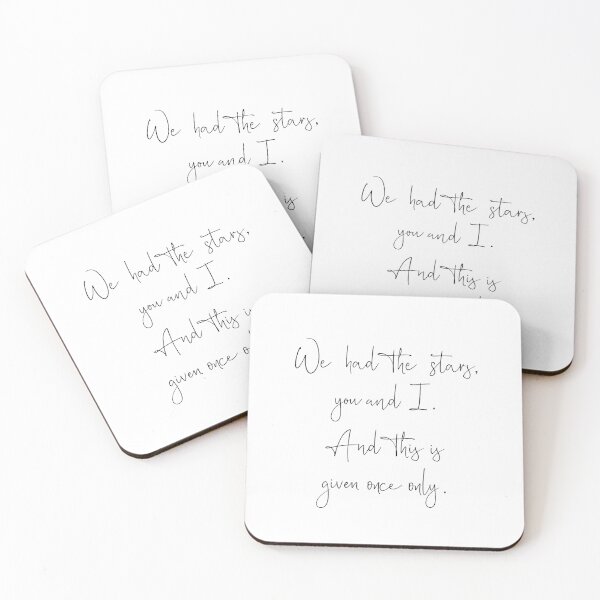 We had the stars,
you and I.
is
We had the stars,
you and I.
And this is
We had the stars,
you and I.
And this is
given once
We had the stars,
you and I.
And this is
given once only.